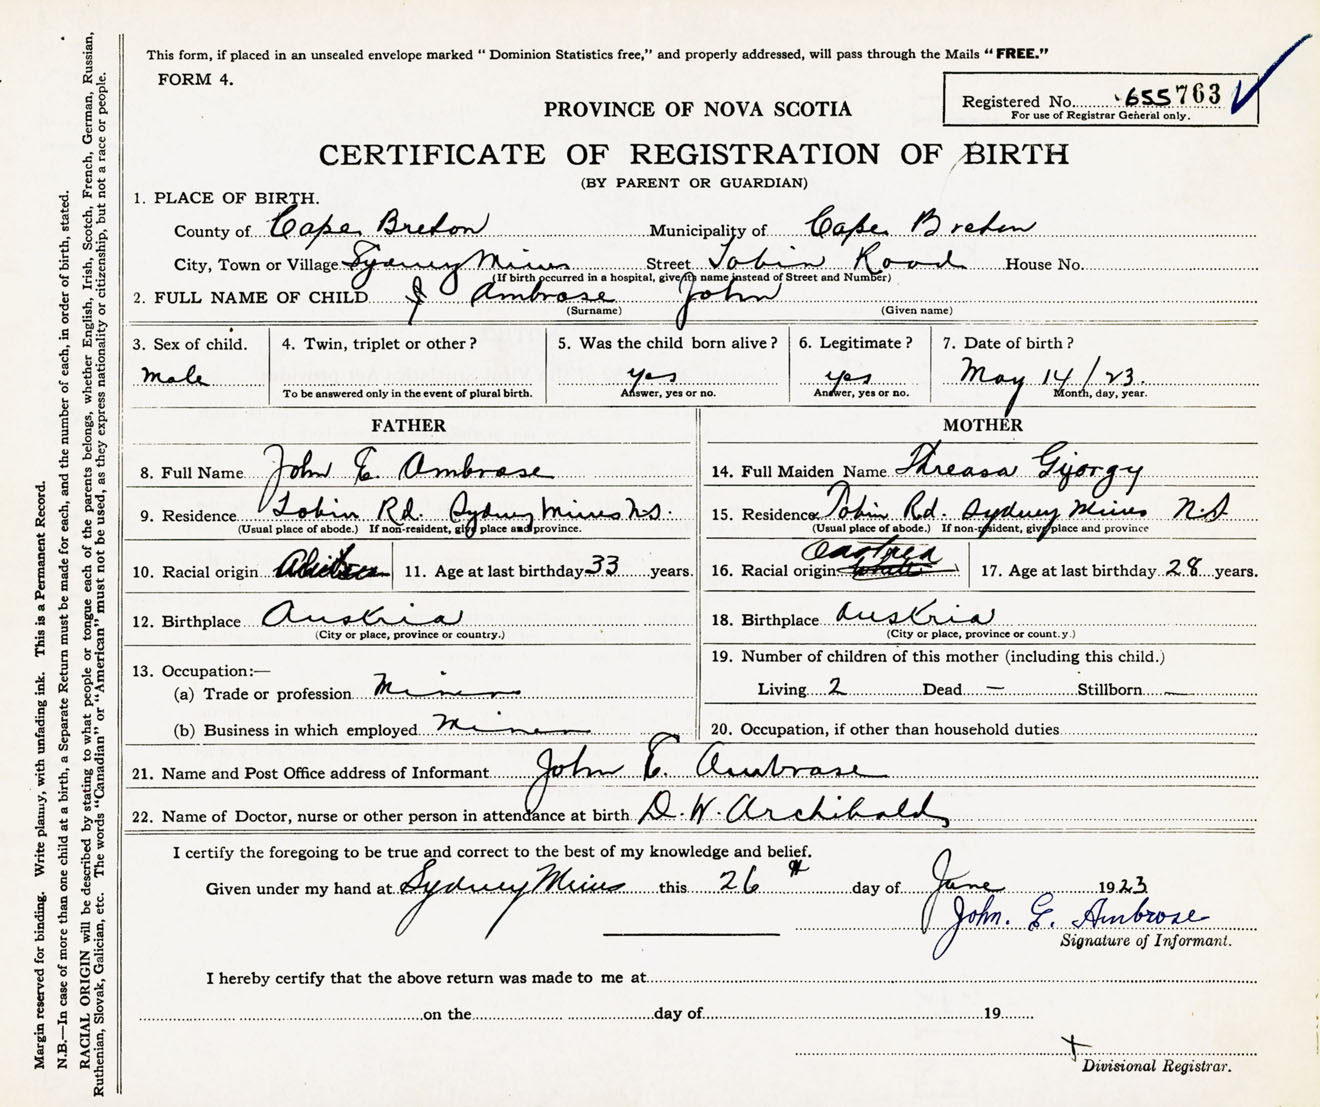 This form, if placed in an unsealed envelope marked "Dominion Statistics free," and properly addressed, will pass through the Mails "FREE."
FORM 4.
Registered No. 655763
For use of Registrar General only.
PROVINCE OF NOVA SCOTIA
CERTIFICATE OF REGISTRATION OF BIRTH
(BY PARENT OR GUARDIAN)
1. PLACE OF BIRTH.
County of Cape Breton Municipality of Cape Breton
City, Town or Village Sydney Mines Street Tobin Road House No.
(If birth occurred in a hospital, give its name instead of Street and Number)
2. FULL NAME OF CHILD Ambrose John
(Surname) (Given name)
3. Sex of child. 4. Twin, triplet or other? 5. Was the child born alive? 6. Legitimate? 7. Date of birth?
Male yes yes May 14/23.
To be answered only in the event of plural birth. Answer, yes or no. Answer, yes or no. Month, day, year.
FATHER MOTHER
8. Full Name John E. Ambrose 14. Full Maiden Name Threasa Gyorgy
9. Residence Tobin Rd. Sydney Mines N.S. 15. Residence Tobin Rd. Sydney Mines N.S
(Usual place of abode.) If non-resident, give place and province. (Usual place of abode.) If non-resident, give place and province
10. Racial origin 11. Age at last birthday 33 years. 16. Racial origin 17. Age at last birthday 28 years.
12. Birthplace Austria 18. Birthplace Austria
(City or place, province or country.) (City or place, province or country.)
13. Occupation:— 19. Number of children of this mother (including this child.)
(a) Trade or profession Miner Living 2 Dead — Stillborn —
(b) Business in which employed Miner 20. Occupation, if other than household duties
21. Name and Post Office address of Informant John E. Ambrose
22. Name of Doctor, nurse or other person in attendance at birth D. W. Archibald
I certify the foregoing to be true and correct to the best of my knowledge and belief.
Given under my hand at Sydney Mines this 26th day of June 1923
John. E. Ambrose
Signature of Informant.
I hereby certify that the above return was made to me at
on the day of 19
Divisional Registrar.
Margin reserved for binding. Write plainly, with unfading ink. This is a Permanent Record.
N.B.—In case of more than one child at a birth, a Separate Return must be made for each, and the number of each, in order of birth, stated.
RACIAL ORIGIN will be described by stating to what people or tongue each of the parents belongs, whether English, Irish, Scotch, French, German, Russian,
Ruthenian, Slovak, Galician, etc. The words "Canadian" or "American" must not be used, as they express nationality or citizenship, but not a race or people.